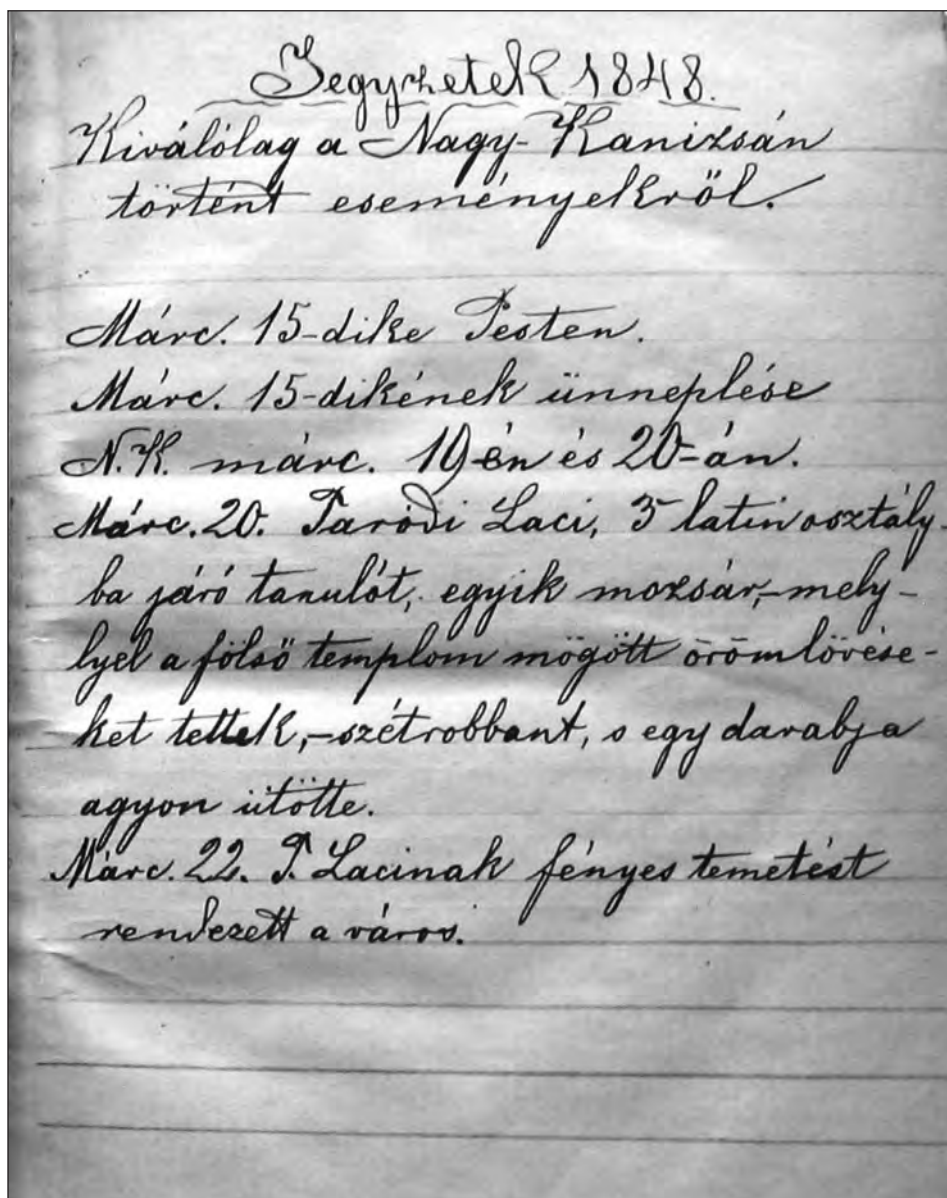 Jegyzetek 1848.
Kiválólag a Nagy-Kanizsán
történt eseményekről.
Márc. 15-dike Pesten.
Márc. 15-dikének ünneplése
N.K. márc. 19-én és 20-án.
Márc. 20. Paródi Laci, 5 latin osztály-
ba járó tanulót, egyik mozsár,-mely-
lyel a fölső templom mögött örömlövése-
ket tettek,-szétrobbant, s egy darabja
agyon ütötte.
Márc. 22. P. Lacinak fényes temetést
rendezett a város.